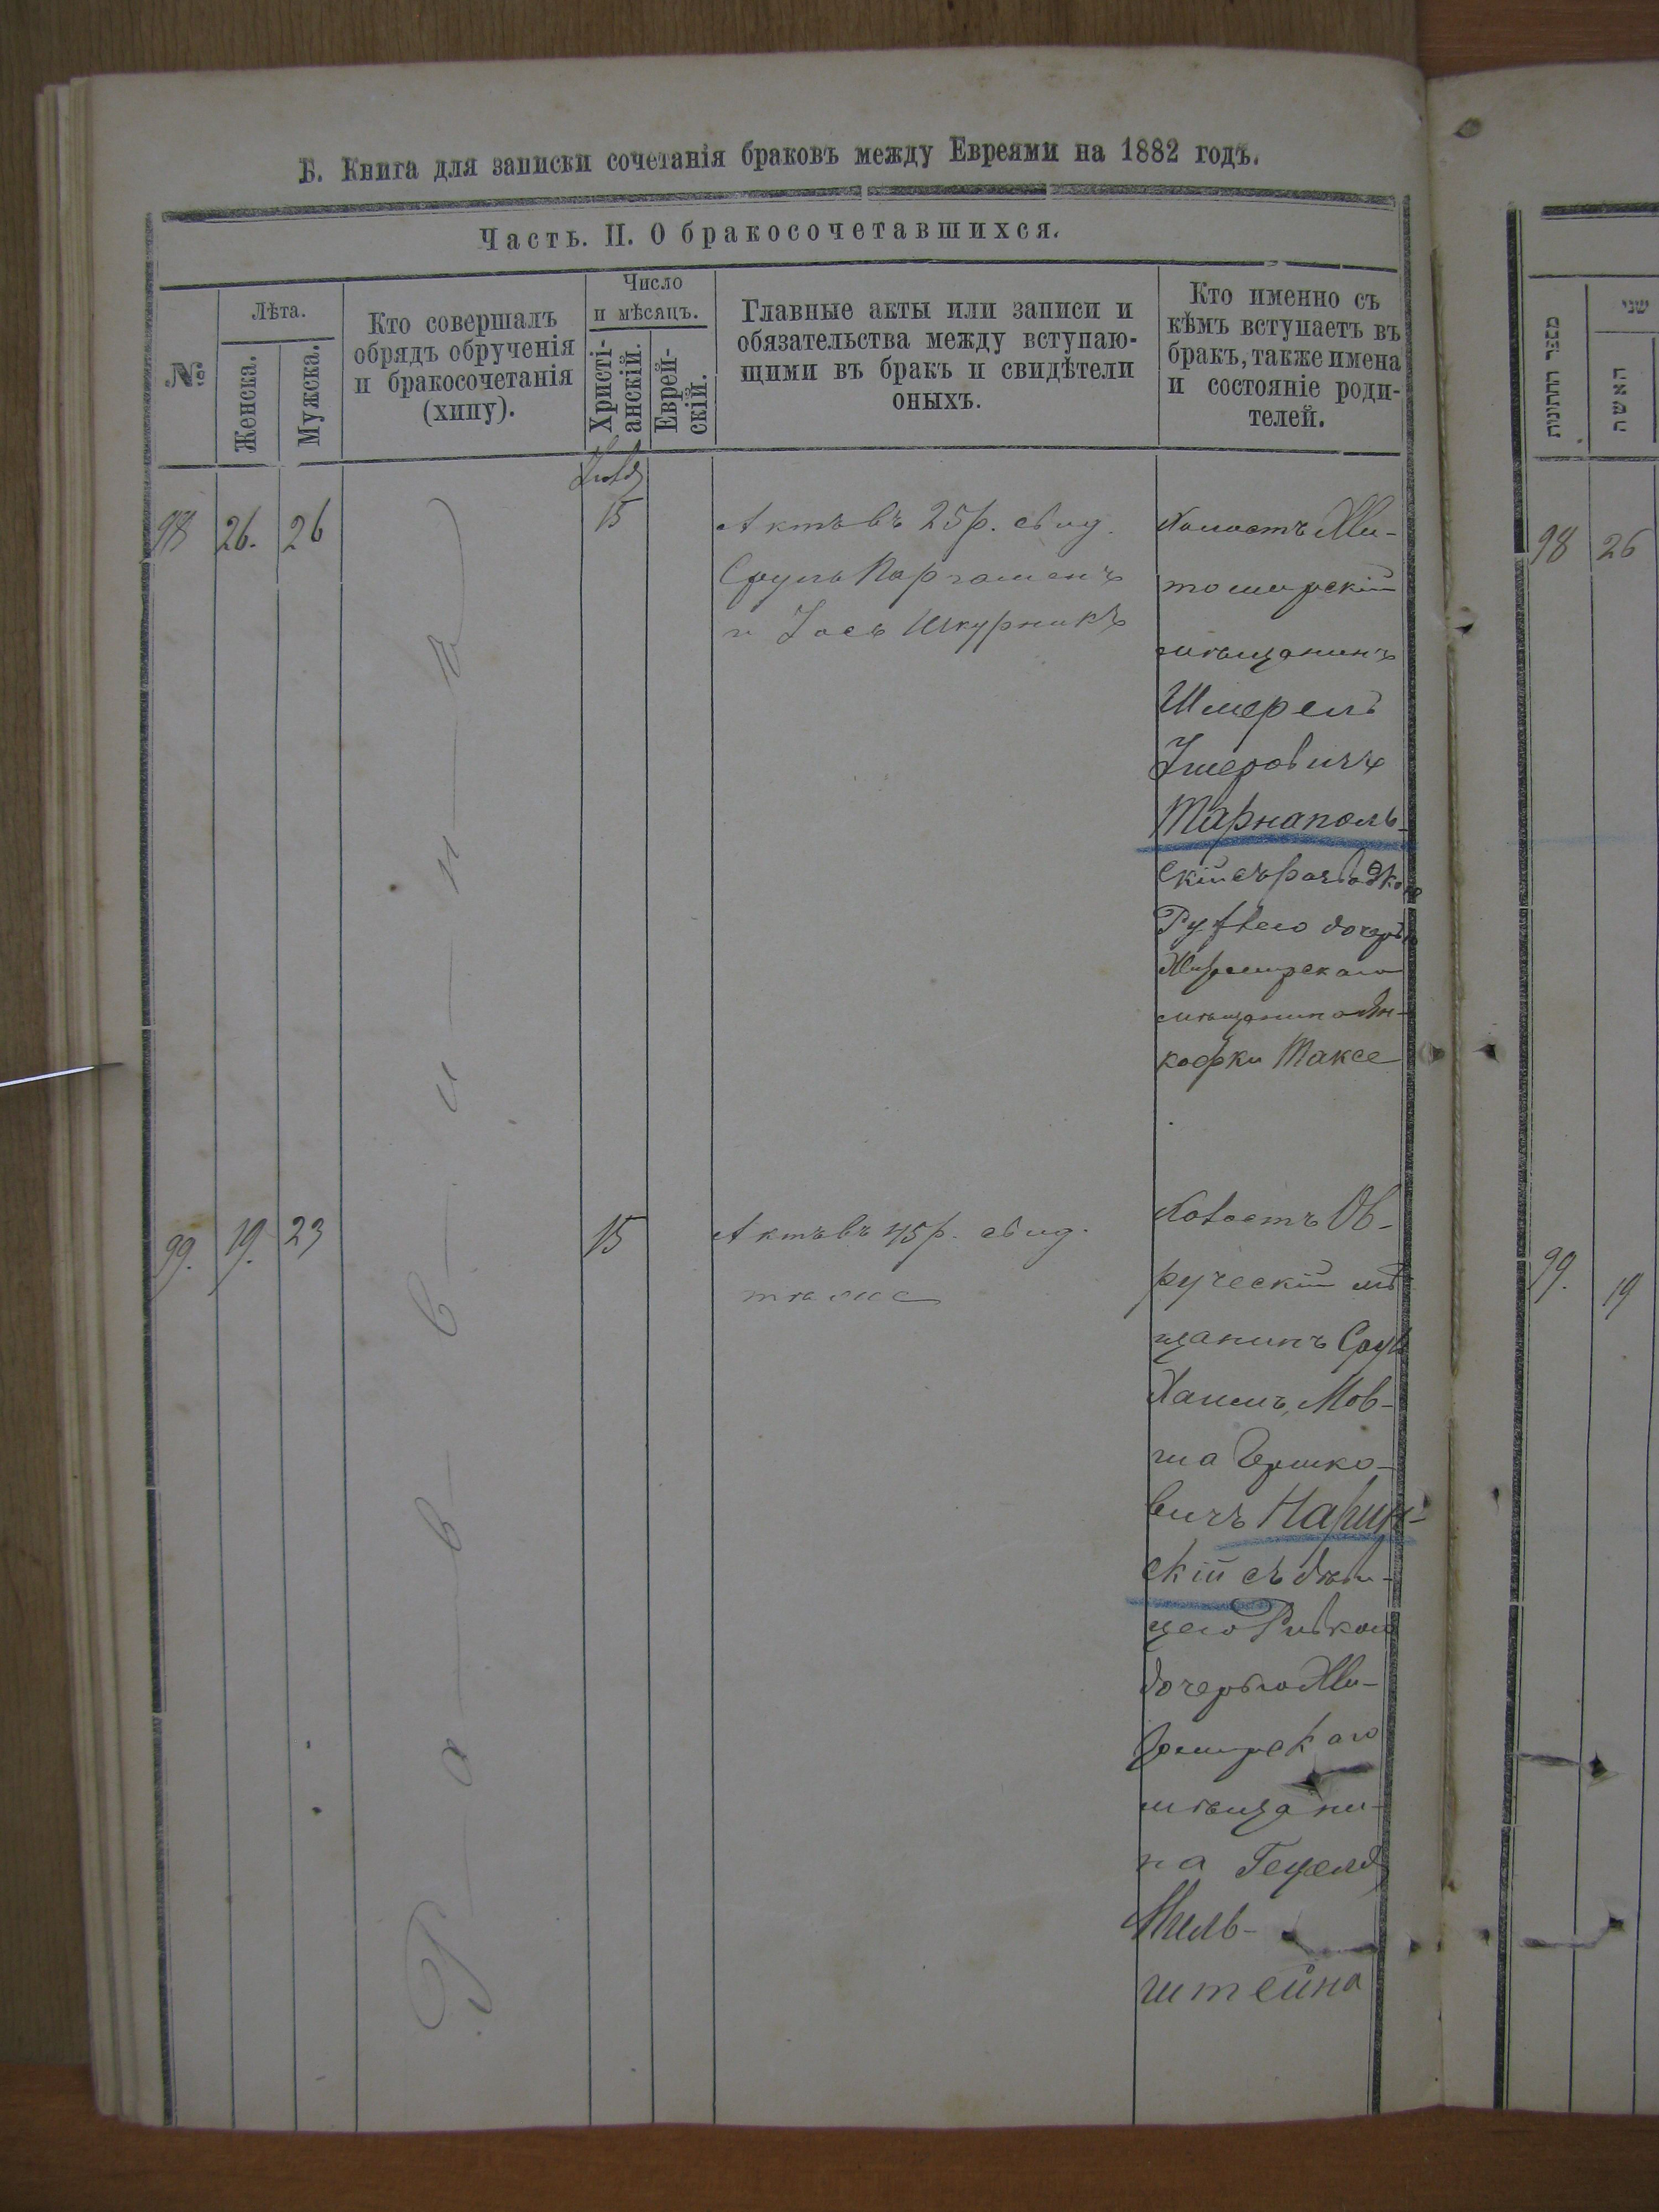 Б. Книга для записки сочетанія браковъ между Евреями на 1882 годъ.
Часть. II. О бракосочетавшихся.
№
Лѣта.
Женска.
Мужска.
Кто совершалъ
обрядъ обрученія
и бракосочетанія
(хипу).
Число
и мѣсяцъ.
Христі-
анскій.
Еврей-
скій.
Главные акты или записи и
обязательства между вступаю-
щими въ бракъ и свидѣтели
оныхъ.
Кто именно съ
кѣмъ вступаетъ въ
бракъ, также имена
и состояніе роди-
телей.
Раввинъ
98
26.
26
15
Актъ въ 25 р. свид.
Сруль
и Іось Шкурникъ
Холостъ Жи-
томирскій
мѣщанинъ
Шмерель
Тарнаполь-
скій съ разводкою
дочерью
Житомирскаго
мѣщанина Ян-
Таксе
99.
19.
23
15
Актъ въ 45 р. свид.
тѣ же
Холостъ Ов-
ручскій мѣ
щанинъ Сруль
Хаимъ Мов-
ша Гершко-
вичъ Нарин-
скій съ дѣви-
цею Ривкою
дочерью Жи-
томирскаго
мѣщани-
на Гецеля
Миль-
штейна
מספר החתונות
שני
האשה
98
26
99.
19